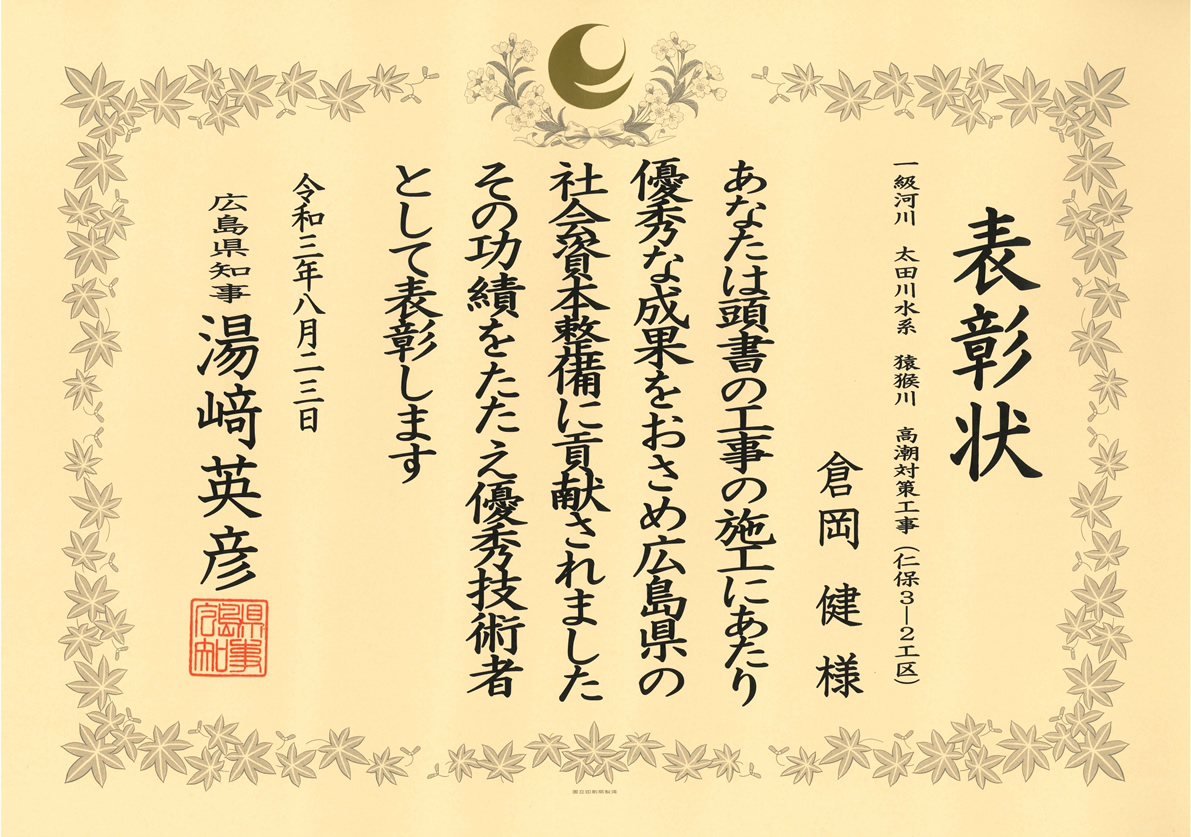 表彰状
一級河川　太田川水系　猿猴川　高潮対策工事（仁保３―２工区）
倉岡　健　様
あなたは頭書の工事の施工にあたり
優秀な成果をおさめ広島県の
社会資本整備に貢献されました
その功績をたたえ優秀技術者
として表彰します
令和三年八月二三日
広島県知事　湯﨑英彦
広島県知事
国立印刷局製造